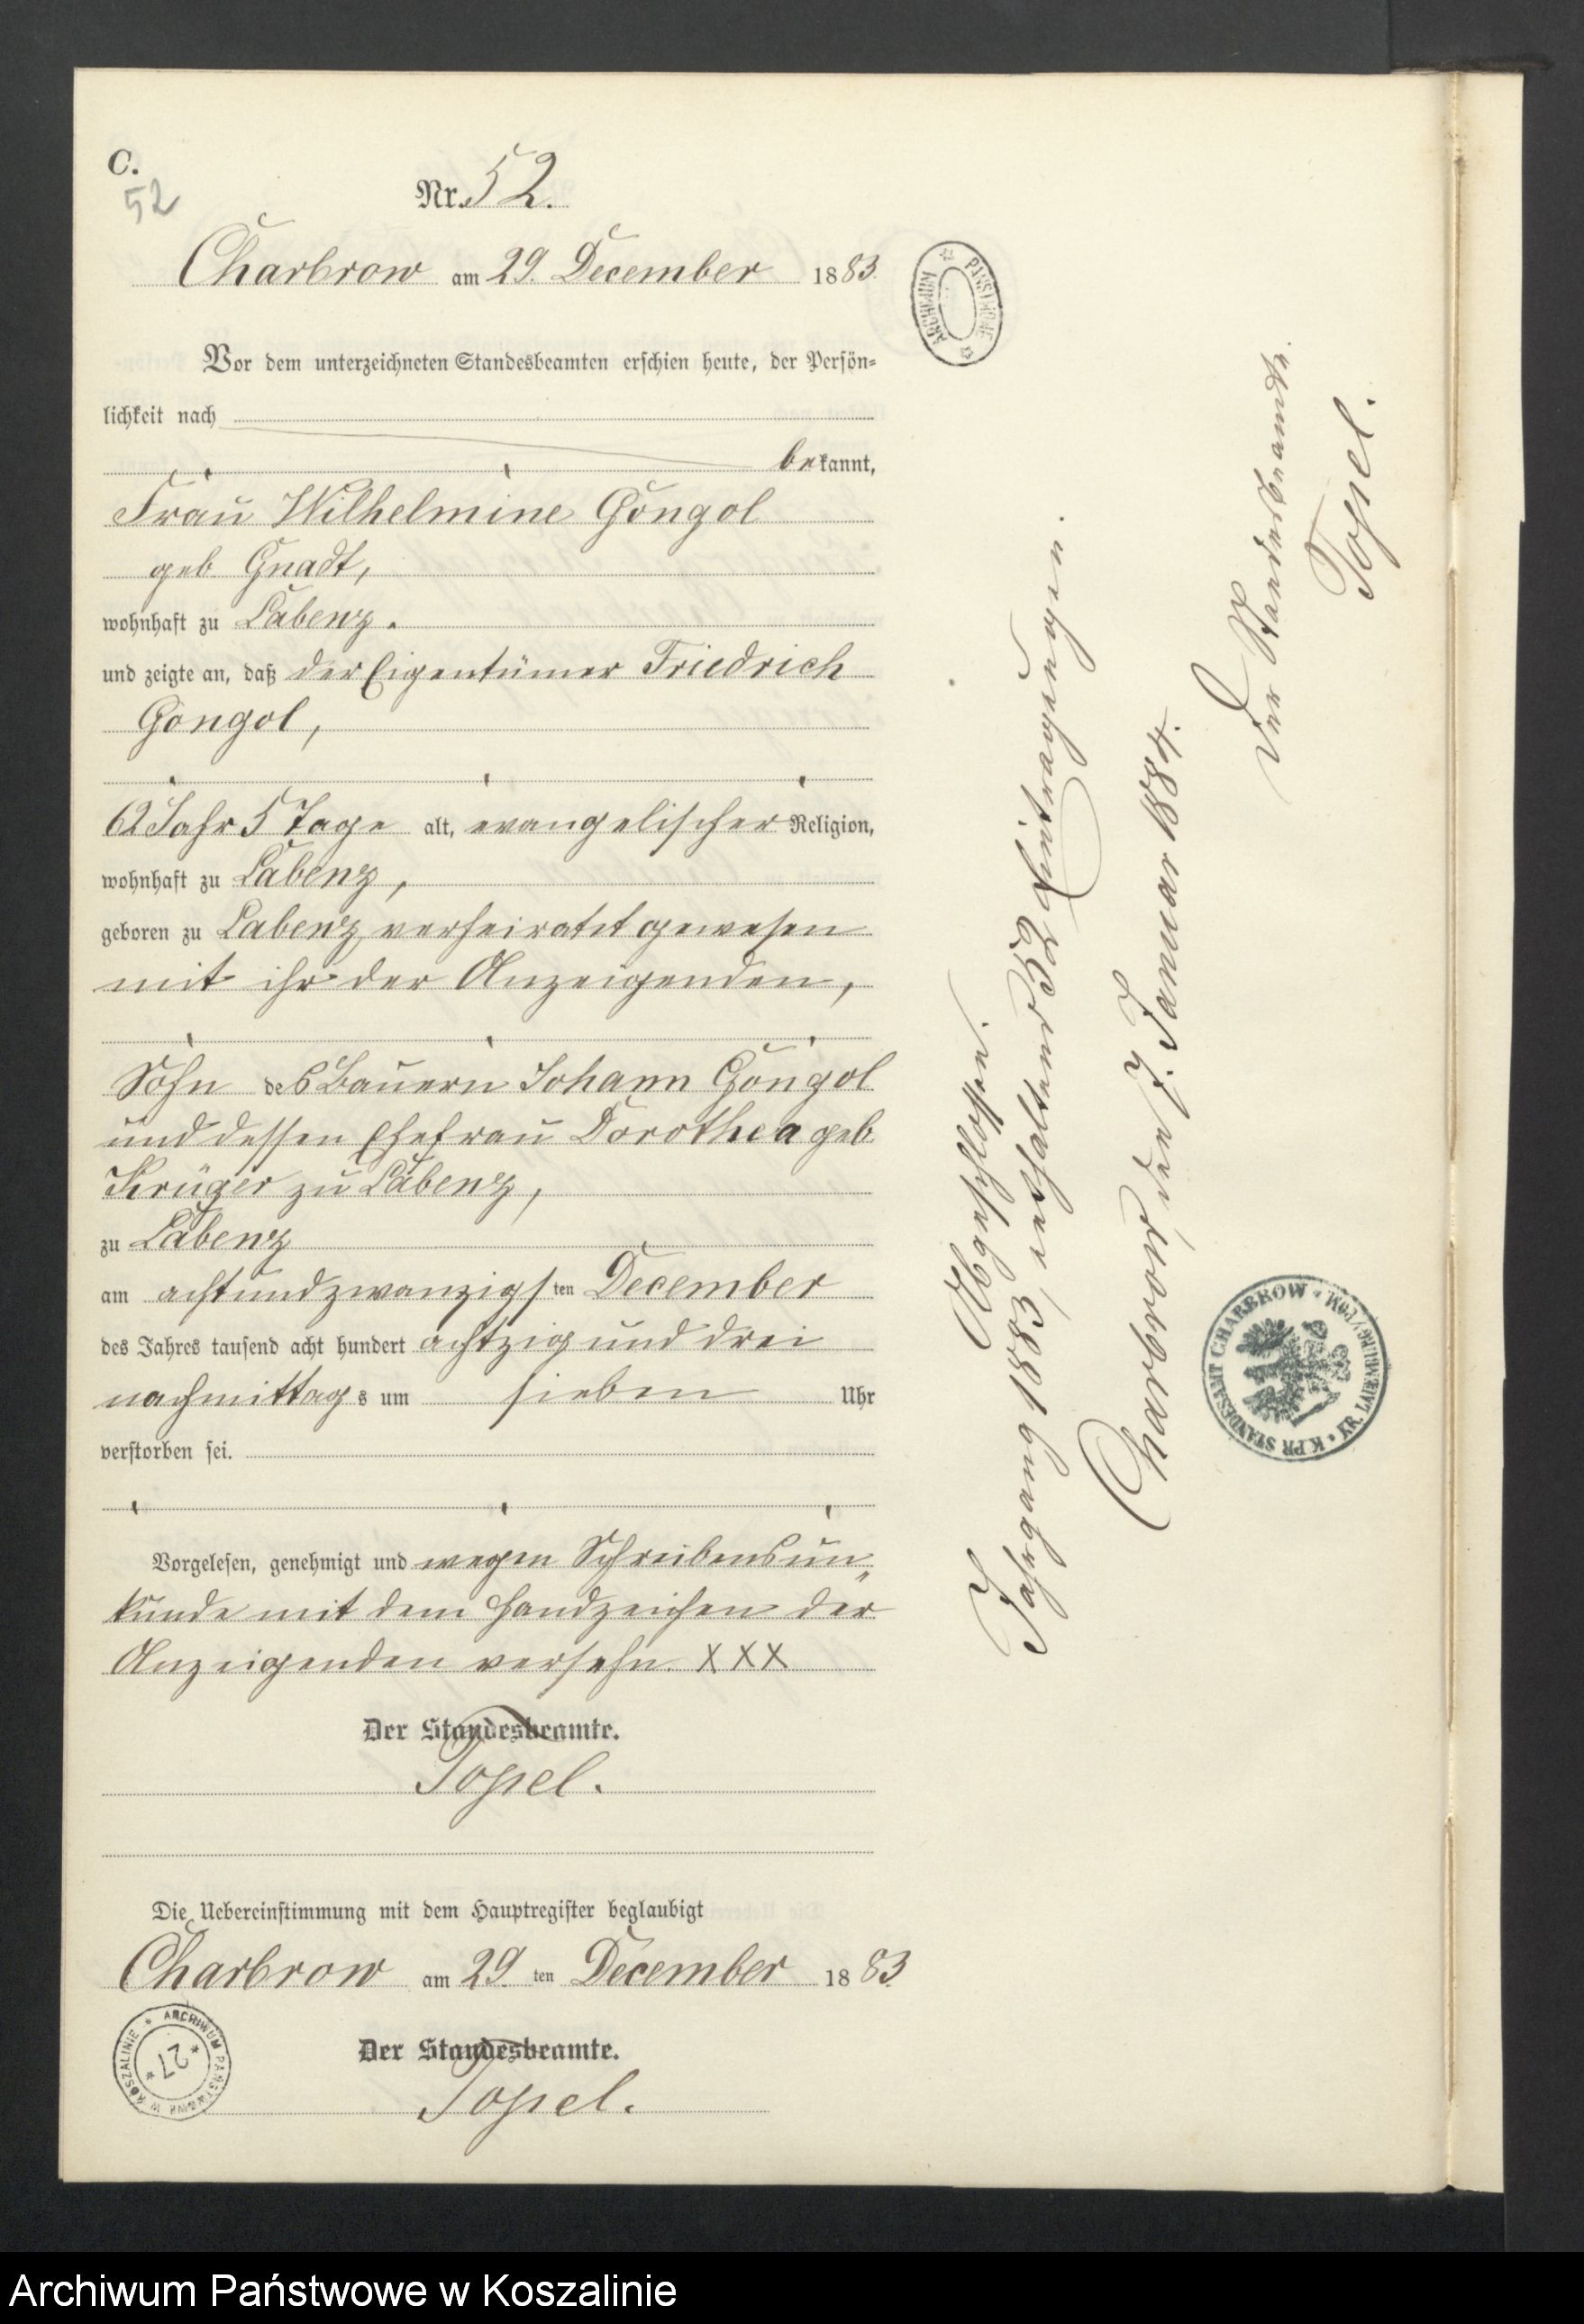 C.
52
Nr. 52.
Charbrow am 29. December 1883.
Vor dem unterzeichneten Standesbeamten erschien heute, der Persön-
lichkeit nach
bekannt,
Frau Wilhelmine Gongol
geb Gnadt,
wohnhaft zu Labenz.
und zeigte an, daß der Eigentümer Friedrich
Gongol,
62 Jahr 5 Tage alt, evangelischer Religion,
wohnhaft zu Labenz,
geboren zu Labenz, verheiratet gewesen
mit ihr der Anzeigenden,
Sohn des Bauern Johann Gongol
und dessen Ehefrau Dorothea geb
Krüger zu Labenz,
zu Labenz
am achtundzwanzigsten December
des Jahres tausend acht hundert achtzig und drei
nachmittags um sieben Uhr
verstorben sei.
Vorgelesen, genehmigt und wegen Schreibensun„
kunde mit dem Handzeichen der
Anzeigenden versehn. XXX
Der Standesbeamte.
Topel.
Die Uebereinstimmung mit dem Hauptregister beglaubigt
Charbrow am 29. ten December 1883.
Der Standesbeamte.
Topel.
ARCHIWUM PAŃSTWOWE W KOSZALINIE
27
ARCHIWUM PAŃSTWOWE
Abgeschlossen.
Jahrgang 1883, enthaltend 52 Eintragungen.
Charbrow, den 7. Januar 1884.
Der Standesbeamte.
Topel.
K. PR. STANDESAMT CHARBROW • KR. LAUENBURG / POM.
Archiwum Państwowe w Koszalinie